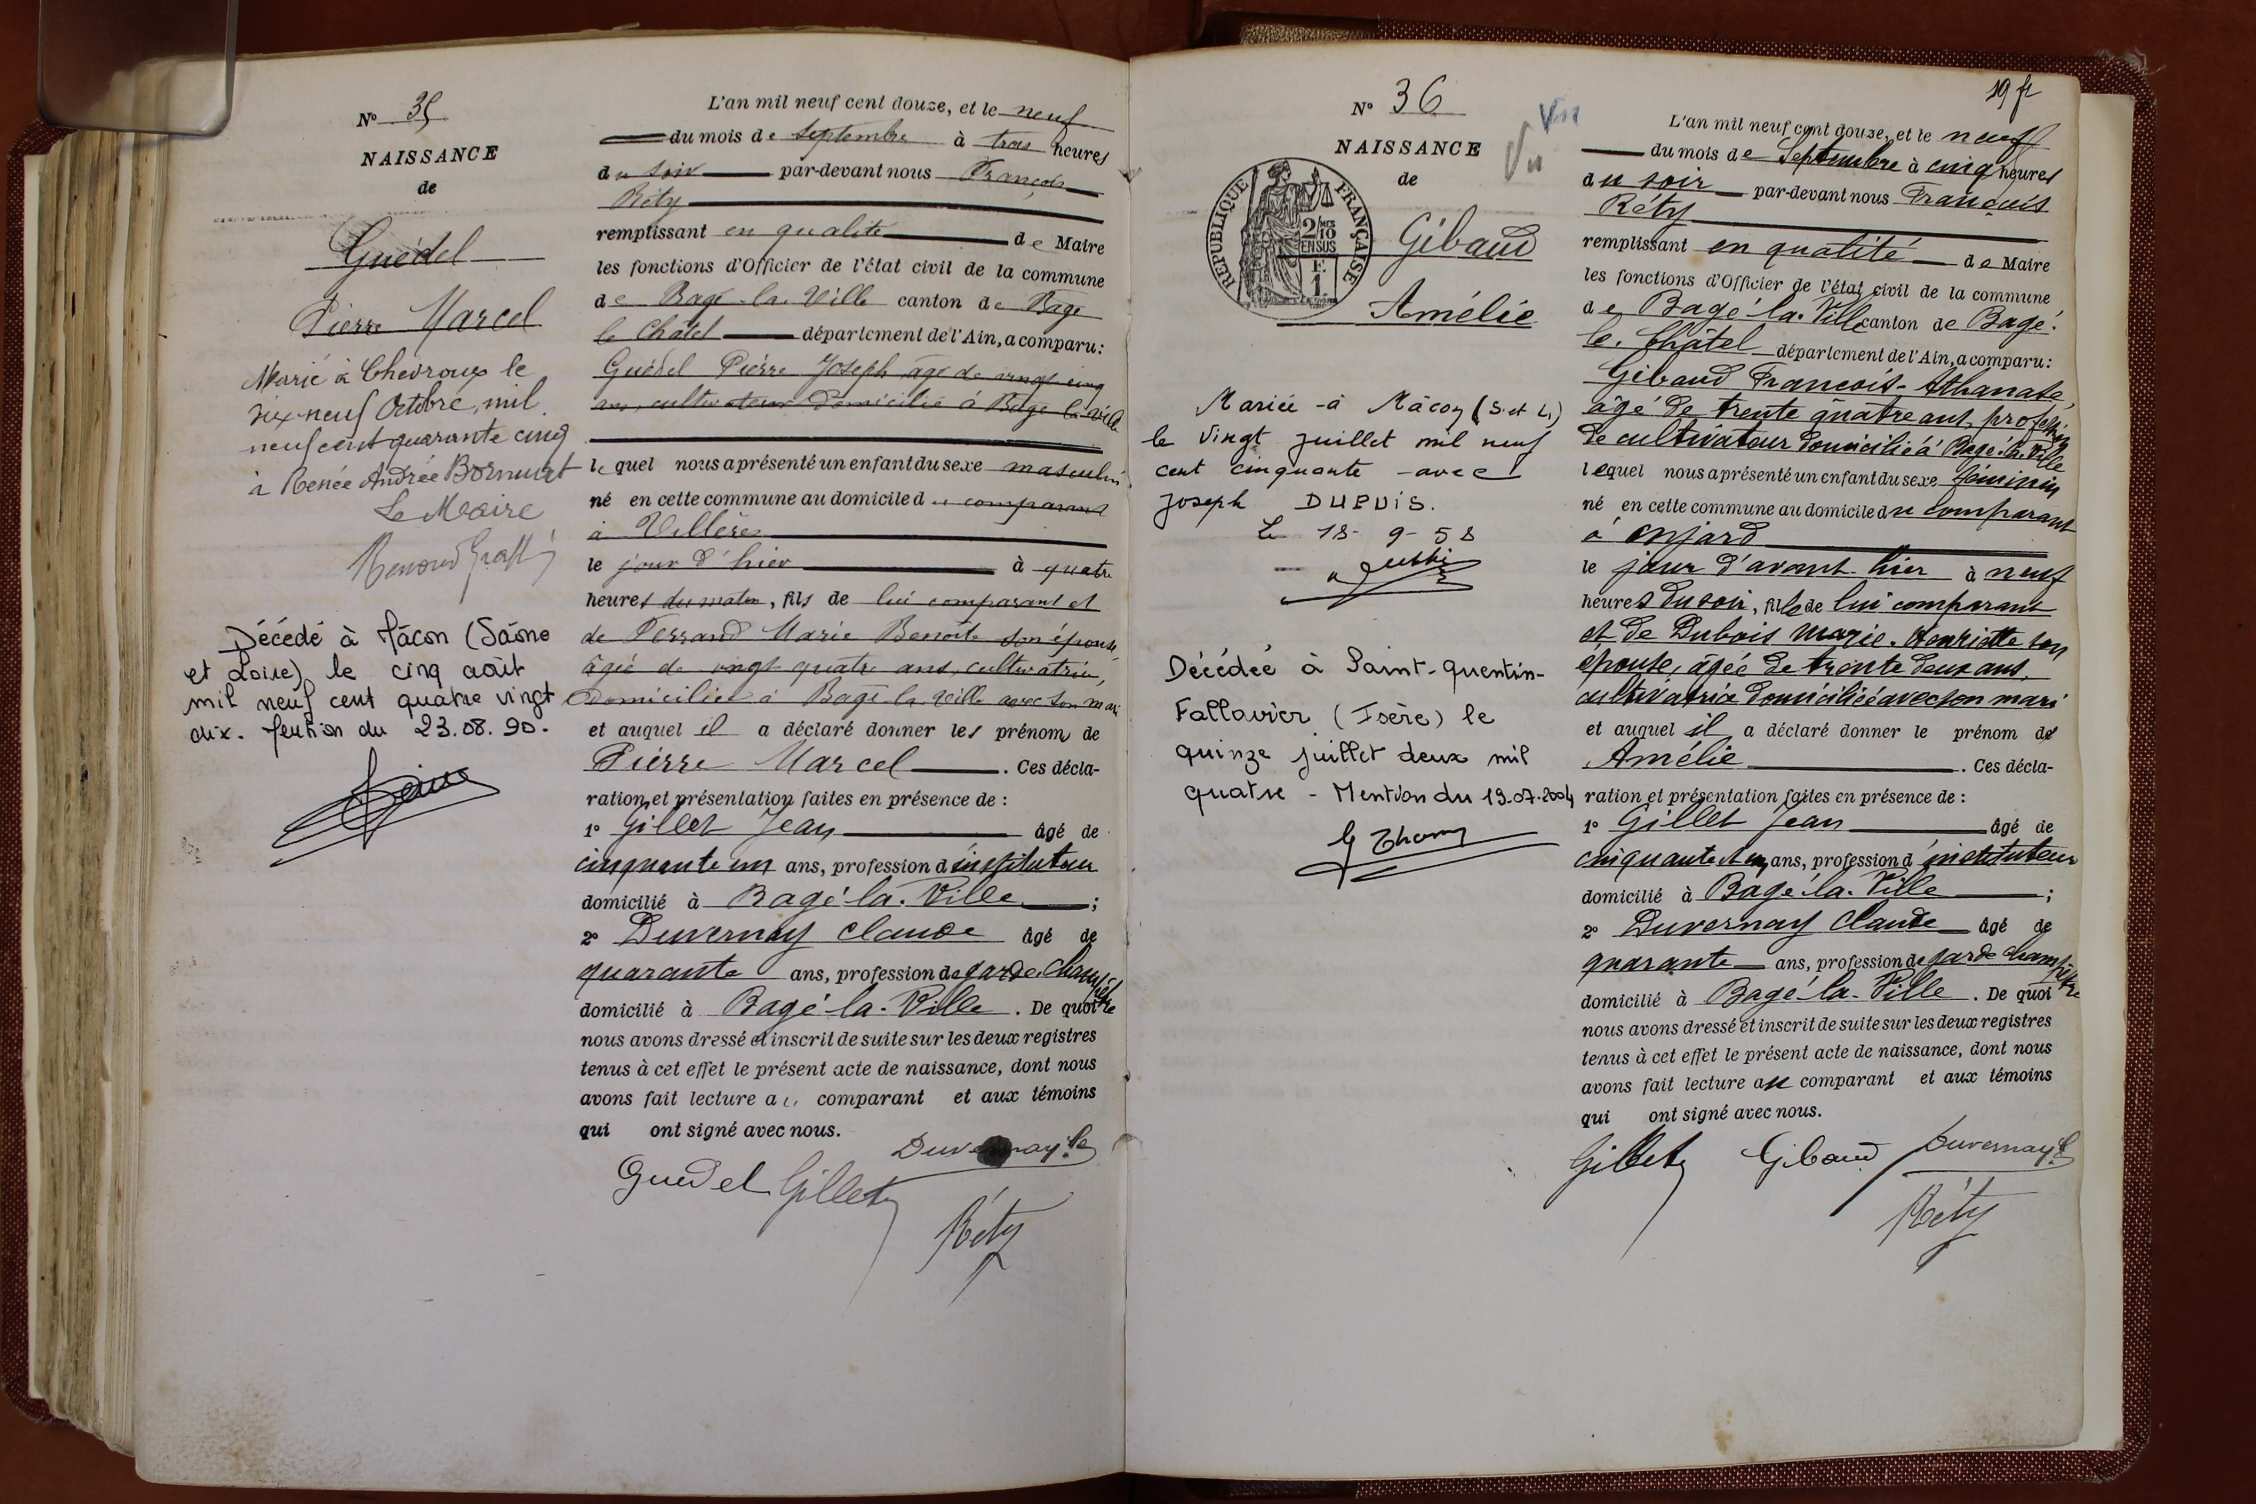 N° 35
NAISSANCE
de
Guédel
Pierre Marcel
Marié à Chevroux le
dix-neuf Octobre mil
neuf cent quarante cinq
à Renée Andrée
Le Maire
Décédé à Mâcon (Saône
et Loire) le cinq août
mil neuf cent quatre vingt
dix. Mention du 23.08.90.
L'an mil neuf cent douze, et le neuf
du mois de Septembre à trois heures
du soir par-devant nous François
Réty
remplissant en qualité de Maire
les fonctions d'Officier de l'état civil de la commune
de Bagé-la-Ville canton de Bagé
le Châtel département de l'Ain, a comparu:
Guédel Pierre Joseph âgé de vingt cinq
ans, cultivateur domicilié à Bagé-la-Ville
lequel nous a présenté un enfant du sexe masculin
né en cette commune au domicile du comparant
à
le jour d'hier à quatre
heures du matin, fils de lui comparant et
de Ferrand Marie Benoîte son épouse
âgée de vingt quatre ans, cultivatrice,
domiciliée à Bagé-la-Ville avec son mari
et auquel il a déclaré donner les prénoms de
Pierre Marcel . Ces décla-
ration et présentation faites en présence de :
1° Gillet Jean âgé de
cinquante un ans, profession d'instituteur
domicilié à Bagé-la-Ville ;
2° Duvernay Claude âgé de
quarante ans, profession de garde champêtre
domicilié à Bagé-la-Ville . De quoi
nous avons dressé et inscrit de suite sur les deux registres
tenus à cet effet le présent acte de naissance, dont nous
avons fait lecture au comparant et aux témoins
qui ont signé avec nous.
Duvernay Cde
Guedel Gillet
Réty
19 fr
N° 36
Vu
Vu
NAISSANCE
de
RÉPUBLIQUE FRANÇAISE
2/10 EN SUS
F. 1.
Gibaud
Amélie
Mariée à Mâcon (S. et L.)
le vingt juillet mil neuf
cent cinquante avec
Joseph DUPUIS.
Le 18-9-58
Décédée à Saint-Quentin-
Fallavier (Isère) le
quinze juillet deux mil
quatre - Mention du 19.07.2004
L'an mil neuf cent douze, et le neuf
du mois de Septembre à cinq heures
du soir par-devant nous François
Réty
remplissant en qualité de Maire
les fonctions d'Officier de l'état civil de la commune
de Bagé-la-Ville canton de Bagé-
le-Châtel département de l'Ain, a comparu:
Gibaud François-Athanase,
âgé de trente quatre ans, profession
de cultivateur domicilié à Bagé-la-Ville
lequel nous a présenté un enfant du sexe féminin
né en cette commune au domicile du comparant
à Onjard
le jour d'avant-hier à neuf
heures du soir, fille de lui comparant
et de Dubois Marie-Henriette son
épouse, âgée de trente deux ans,
cultivatrice domiciliée avec son mari
et auquel il a déclaré donner le prénom de
Amélie . Ces décla-
ration et présentation faites en présence de :
1° Gillet Jean âgé de
cinquante et un ans, profession d'instituteur
domicilié à Bagé-la-Ville ;
2° Duvernay Claude âgé de
quarante ans, profession de garde champêtre
domicilié à Bagé-la-Ville . De quoi
nous avons dressé et inscrit de suite sur les deux registres
tenus à cet effet le présent acte de naissance, dont nous
avons fait lecture au comparant et aux témoins
qui ont signé avec nous.
Gillet Gibaud Duvernay Cde
Réty